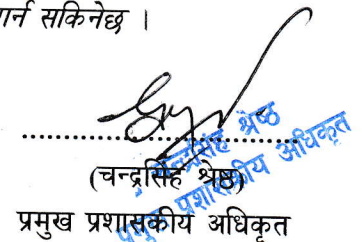 गर्न सकिनेछ ।
चन्द्रसिंह श्रेष्ठ
प्रमुख प्रशासकीय अधिकृत
(चन्द्रसिंह श्रेष्ठ)
प्रमुख प्रशासकीय अधिकृत